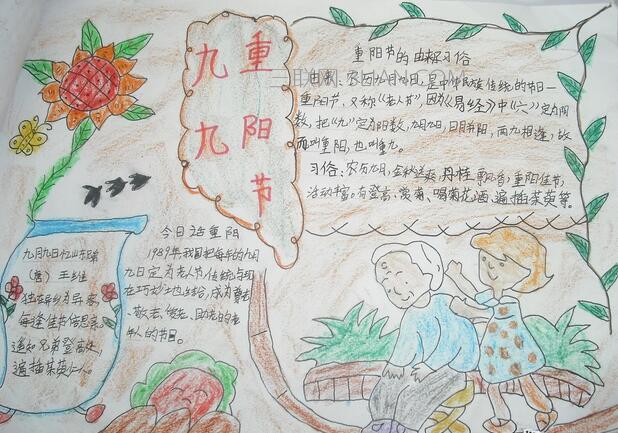 九九
重阳节
重阳节的由来习俗
由来:农历九月九日,是中华民族传统的节日—
重阳节,又称《老人节》,因为《易经》中"六"定为阴
数,把"九"定为阳数,九月九日,日月并阳,两九相逢,故
而叫重阳,也叫重九。
习俗:农历九月,金秋送爽,丹桂飘香,重阳佳节,
活动丰富。有登高、赏菊、喝菊花酒、遍插茱萸等。
今日话重阳
1989年我国把每年的九月
九日定为老人节,传统与现
在巧妙地结合,成为尊老
、敬老、爱老、助老的老
年人的节日。
九月九日忆山东兄弟
(唐) 王维
独在异乡为异客,
每逢佳节倍思亲。
遥知兄弟登高处,
遍插茱萸少一人。